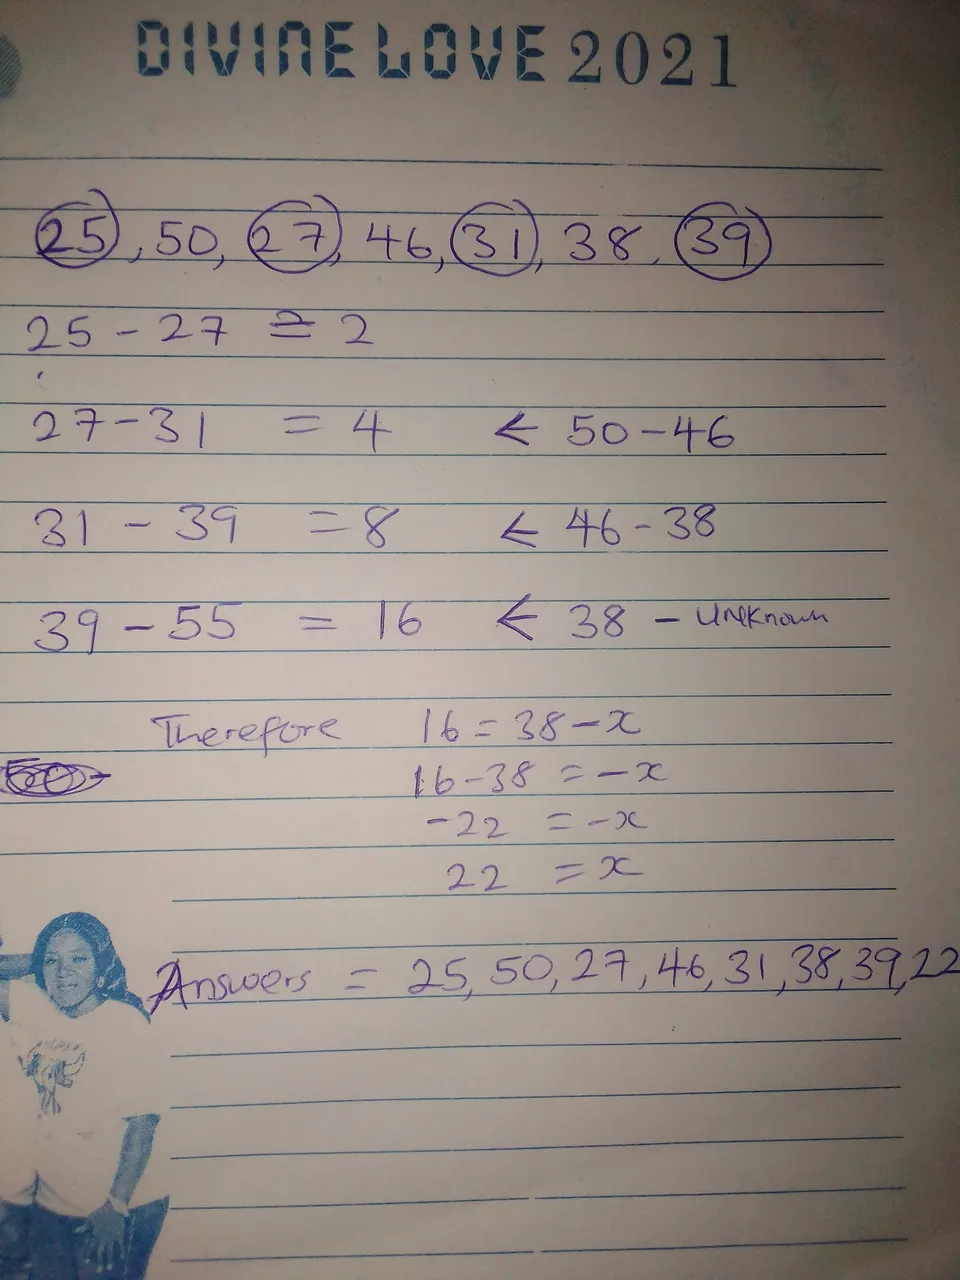 DIVINE LOVE 2021
25, 50, 27, 46, 31, 38, 39
25 - 27 = 2
27 - 31 = 4 ← 50 - 46
31 - 39 = 8 ← 46 - 38
39 - 55 = 16 ← 38 - Unknown
Therefore 16 = 38 - x
16 - 38 = -x
-22 = -x
22 = x
Answers = 25, 50, 27, 46, 31, 38, 39, 22